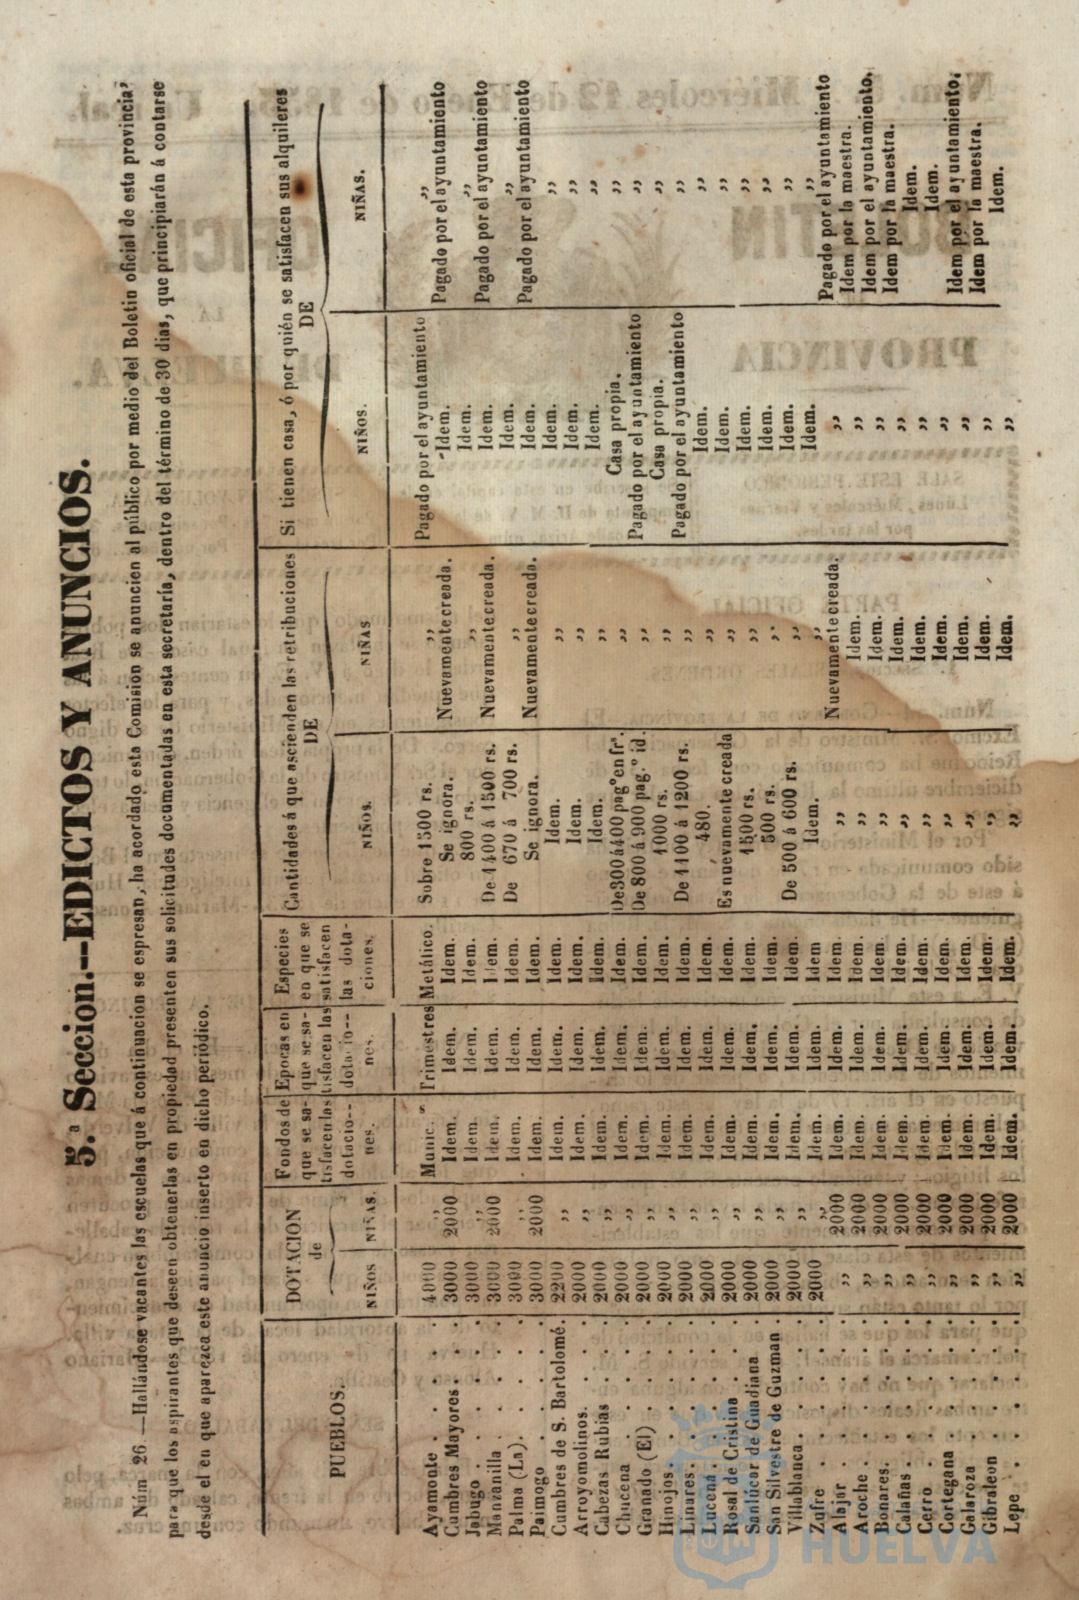 5.ª Seccion.--EDICTOS Y ANUNCIOS.
Núm 26.—Hallándose vacantes las escuelas que á continuacion se espresan, ha acordado esta Comision se anuncien al público por medio del Boletin oficial de esta provincia,
para que los aspirantes que deseen obtenerlas en propiedad presenten sus solicitudes documentadas en esta secretaría, dentro del término de 30 dias, que principiarán á contarse
desde el en que aparezca este anuncio inserto en dicho periódico.
PUEBLOS.
DOTACION
de
NIÑOS NIÑAS.
Fondos de
que se sa-
tisfacen las
dotacio--
nes.
Epocas en
que se sa-
tisfacen las
dotacio--
nes.
Especies
en que se
satisfacen
las dota-
ciones.
Cantidades á que ascienden las retribuciones
DE
NIÑOS. NIÑAS
Si tienen casa, ó por quién se satisfacen sus alquileres
DE
NIÑOS. NIÑAS.
Ayamonte . . . . . 4000 ,, Munic.s Trimestres Metálico. Sobre 1300 rs. ,, Pagado por el ayuntamiento ,,
Cumbres Mayores . . . 3000 2000 Idem. Idem. Idem. Se ignora. Nuevamente creada. Idem. Pagado por el ayuntamiento
Jabugo . . . . . 3000 ,, Idem. Idem. Idem. 800 rs. ,, Idem. ,,
Manzanilla . . . . . 3000 2000 Idem. Idem. Idem. De 1400 á 1500 rs. Nuevamente creada. Idem. Pagado por el ayuntamiento
Palma (La) . . . . . 3000 ,, Idem. Idem. Idem. De 670 á 700 rs. ,, Idem. ,,
Paimogo . . . . . 3000 2000 Idem. Idem. Idem. Se ignora. Nuevamente creada. Idem. Pagado por el ayuntamiento
Cumbres de S. Bartolomé. 2200 ,, Idem. Idem. Idem. Idem. ,, Idem. ,,
Arroyomolinos. . . . 2000 ,, Idem. Idem. Idem. Idem. ,, Idem. ,,
Cabezas Rubias . . . 2000 ,, Idem. Idem. Idem. Idem. ,, Idem. ,,
Chucena . . . . . 2000 ,, Idem. Idem. Idem. De300 á400 pagº en frs. ,, Casa propia. ,,
Granado (El) . . . . 2000 ,, Idem. Idem. Idem. De 800 á 900 pag.º id. ,, Pagado por el ayuntamiento ,,
Hinojos . . . . . 2000 ,, Idem. Idem. Idem. 1000 rs. ,, Casa propia. ,,
Linares. . . . . . 2000 ,, Idem. Idem. Idem. De 1100 á 1200 rs. ,, Pagado por el ayuntamiento ,,
Lucena . . . . . 2000 ,, Idem. Idem. Idem. 480. ,, Idem. ,,
Rosal de Cristina . . . 2000 ,, Idem. Idem. Idem. Es nuevamente creada ,, Idem. ,,
Sanlúcar de Guadiana . . 2000 ,, Idem. Idem. Idem. 1500 rs. ,, Idem. ,,
San Silvestre de Guzman . 2000 ,, Idem. Idem. Idem. 500 rs. ,, Idem. ,,
Villablanca . . . . . 2000 ,, Idem. Idem. Idem. De 500 á 600 rs. ,, Idem. ,,
Zufre . . . . . 2000 ,, Idem. Idem. Idem Idem. ,, Idem. ,,
Alajar . . . . . ,, 2000 Idem. Idem. Idem. ,, Nuevamente creada. ,, Pagado por el ayuntamiento
Aroche . . . . . ,, 2000 Idem. Idem. Idem. ,, Idem. ,, Idem por la maestra.
Bonares. . . . . ,, 2000 Idem. Idem. Idem. ,, Idem. ,, Idem por el ayuntamiento.
Calañas . . . . . ,, 2000 Idem. Idem. Idem. ,, Idem. ,, Idem por la maestra.
Cerro . . . . . ,, 2000 Idem. Idem. Idem. ,, Idem. ,, Idem.
Cortegana . . . . ,, 2000 Idem. Idem. Idem. ,, Idem. ,, Idem.
Galaroza . . . . ,, 2000 Idem. Idem. Idem. ,, Idem. ,, Idem por el ayuntamiento.
Gibraleon . . . . ,, 2000 Idem. Idem. Idem. ,, Idem. ,, Idem por la maestra.
Lepe . . . . . ,, 2000 Idem. Idem. Idem. ,, Idem. ,, Idem.
HUELVA